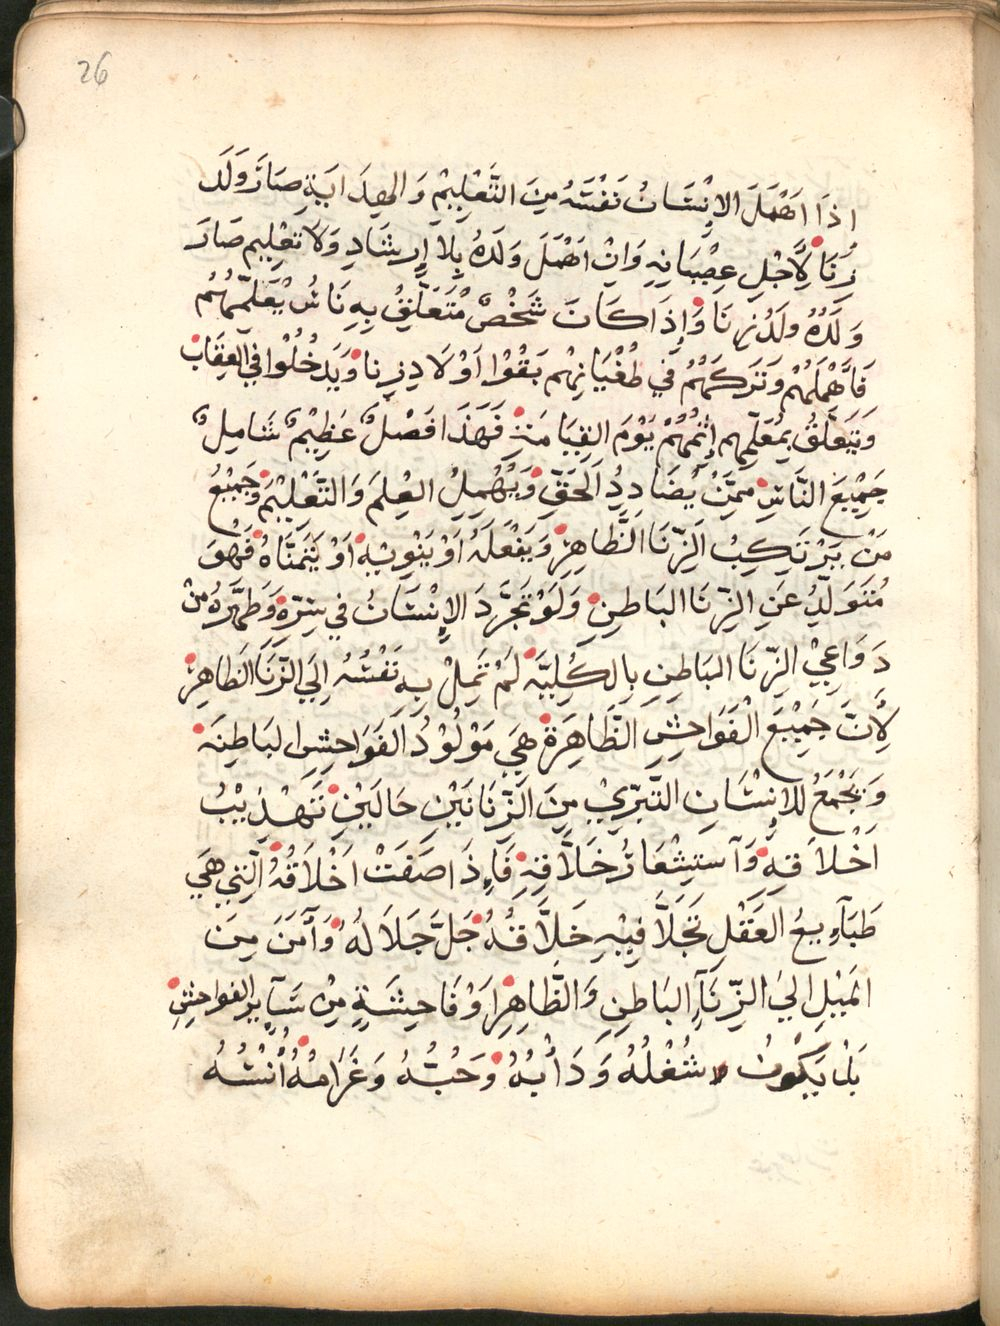 26
اذَا اَهْمَلَ الاِنْسَانُ نَفْسَهُ مِنَ التَّعْلِيْمِ وَالهِدَايَةِ صَارَ وَلَدَ
زِنَا لِاَجْلِ عِصْيَانِهِ وَاِنْ اَهْمَلَ وَلَدَهُ بِلَا إِرْشَادٍ وَلَا تَعْلِيمٍ صَارَ
وَلَدُهُ ولَدُ زِنَا وَإِذَا كَانَ شَخْصٌ مُتَعَلِّقُ بِهِ نَاسُ يُعَلِّمُهُمُ
فَاَهْمَلَهُمْ وَتَرَكَهُمْ في طُغْيَانِهِم بَقُوْا اَوْلَادِ زِنا وَيَدْخُلُوا في العِقَابْ
وَيَتَعَلَّقُ بِمُعَلِّمِهِم إِثْمُهُمْ يَوْمَ القِيَامَةِ فَهَذَا فَصْلٌ عَظِيْمٌ شَامِلٌ
جَمِيْعَ النَّاسِ مِمَّنْ يُضَادِدُ الَحَقِّ وَيُهْمِلُ العِلمَ وَالتَّعْلِيْمَ وَجَمِيْعُ
مَنْ يَرْتَكِبُ الزِّنَا الظَّاهِرِ وَيَفْعَلَهُ اَوْ يَنْوِيْهِ اَوْ يَتَمَنَّاهُ فَهْوَ
مُتَوَلِّدُ عَنِ الزِّنَا البَاطِنِ وَلَوْ تَجَرَّدَ الاِنْسَانُ في سِرِّهِ وَطَهَّرَهُ مِنْ
دَوَاعِيْ الزِّنَا البَاطِنِ بِالكُلِيَّهِ لَمْ تَمِلْ بِهِ نَفْسُهُ اِلَي الزِّنَا الظَاهِرْ
لِاَنَّ جَمِيْعَ الْفَوَاحِشِ الظَّاهِرَةِ هِيَ مَوْلُوْدُ الَفَوَاحِشِ البَاطِنَهْ
وَيَجْمَعُ للاِنْسَانِ التَّبَرِّيْ مِنَ الَزِّنَائَيْنِ حَالَيْنِ تَهْذِيْبُ
اَخْلَاقِهِ وَآستِشْعَارُ خَلَّاقِهِ فَاِذَا صَفَتْ اَخْلَاقُهُ الَّتِي هَي
طَبَآيِعُ العَقْلِ تَجَلَّا فِيْهِ خَلَّاقُهُ جَلَّ جَلَالهُ وَآمَنَ مِنَ
المَيْلِ الَى الزِّنَآءِ البَاطِنِ وَالظَّاهِرِ اَوْ فَاحِشَةٍ مِنْ سَآيِرِ الفواحِشِ
بَلْ يَكُوْنُ شُغْلُهُ وَدَأْبُهُ وَحُبُّهُ وَغَرَامُهُ اُنْسُهُ